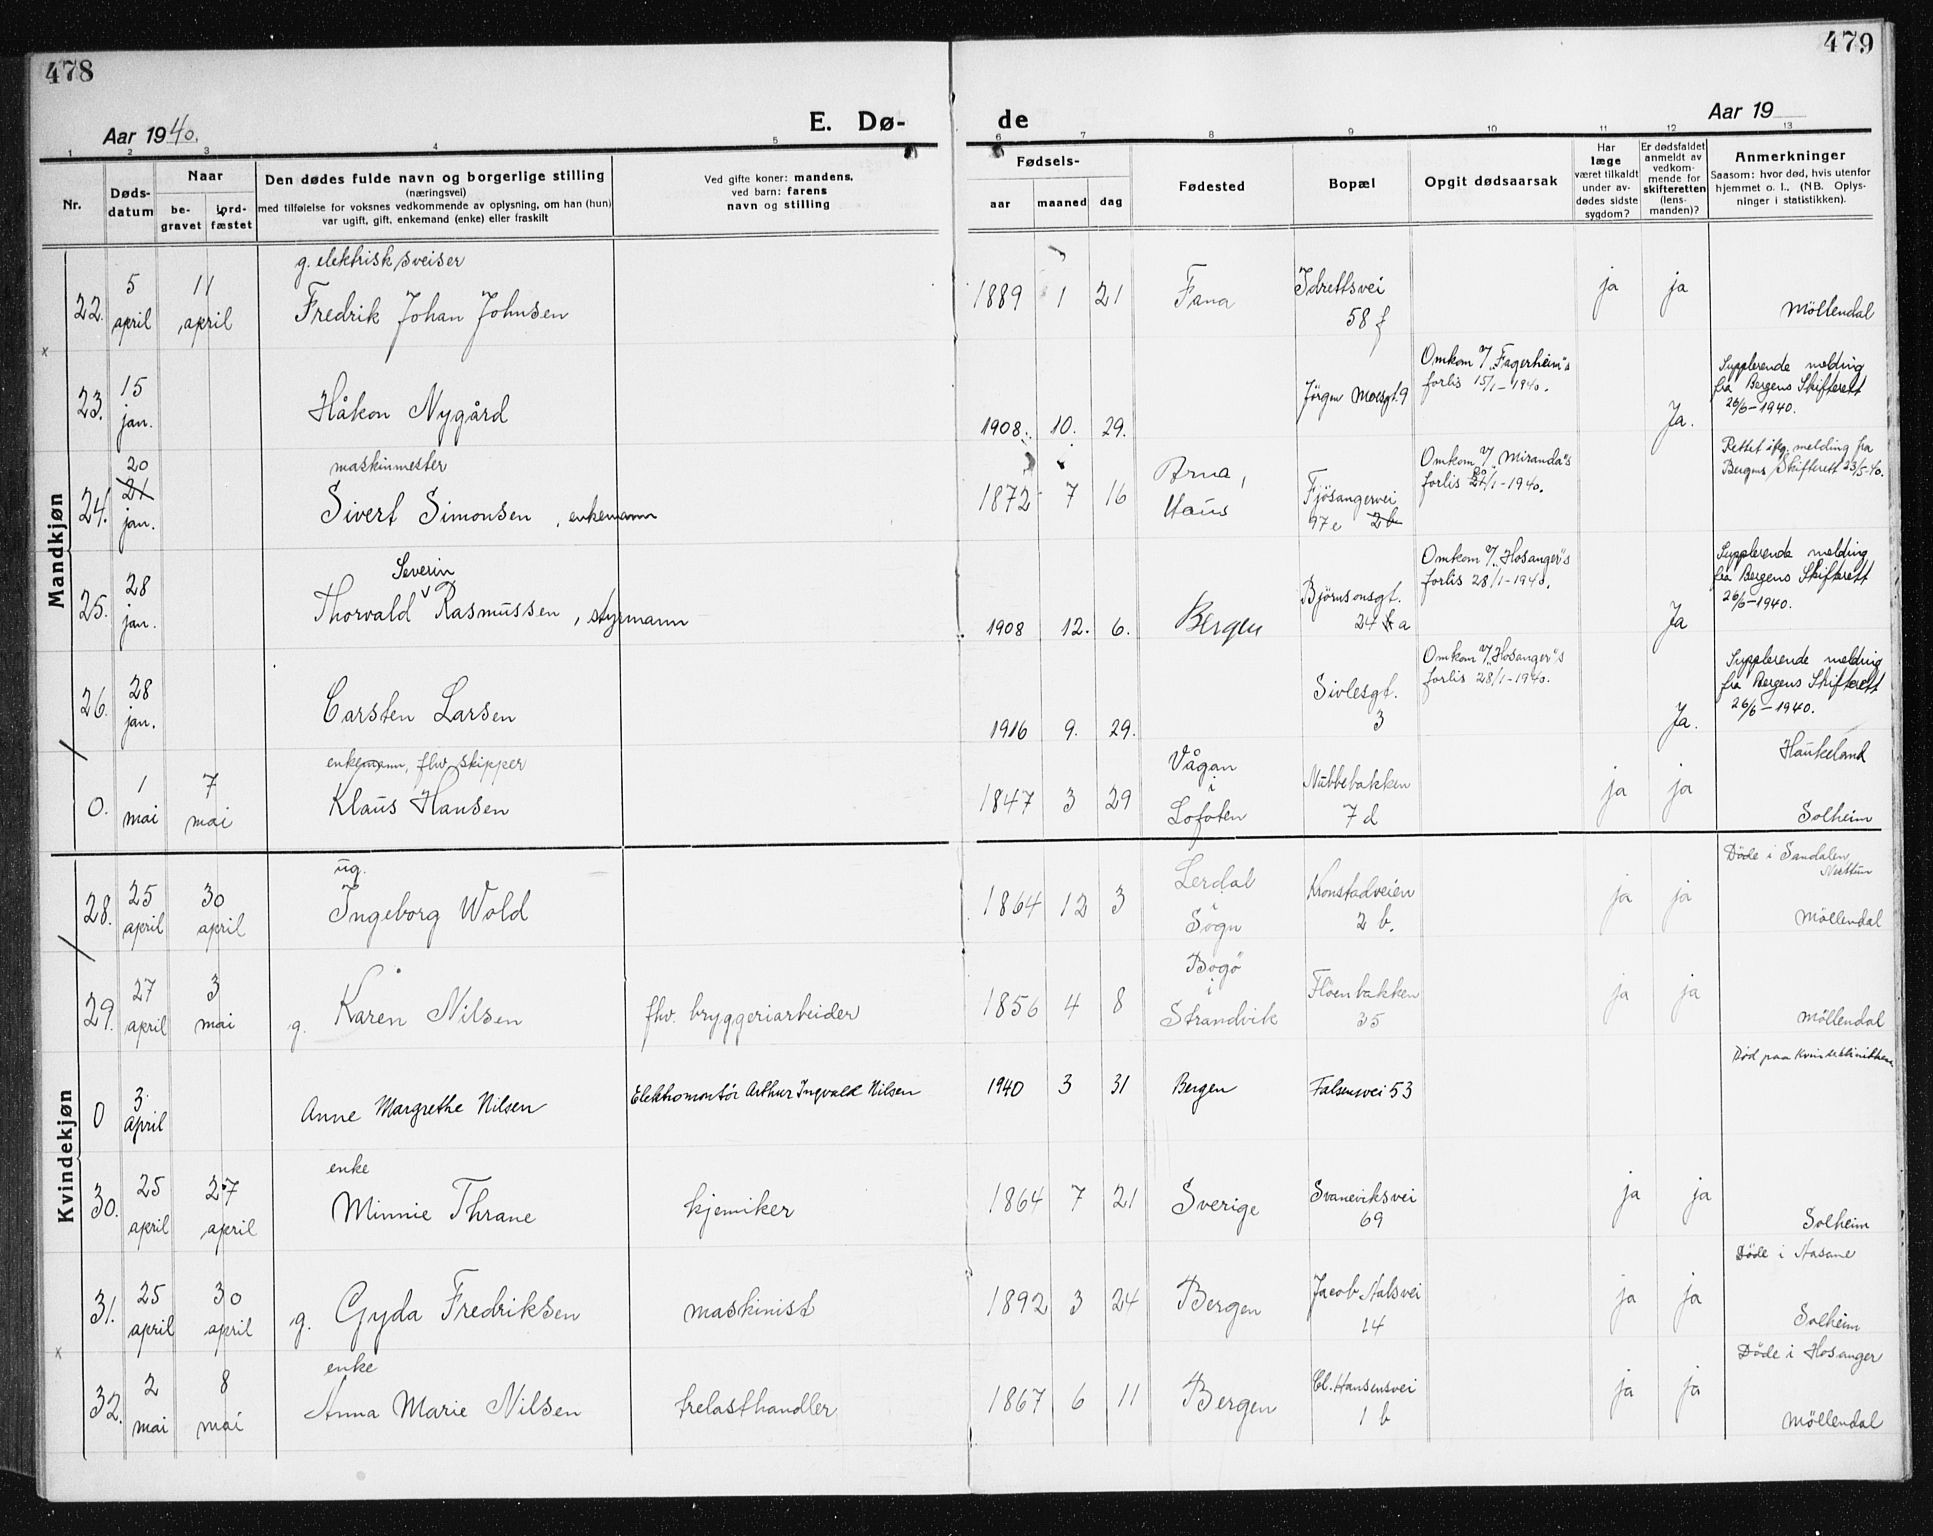 478
479
Aar 1940.
E. Dø-
de
Aar 19
1 2 3 4 5 6 7 8 9 10 11 12 13
Nr.
Døds-
datum
Naar
be-
gravet
jord-
fæstet
Den dødes fulde navn og borgerlige stilling
(næringsvei)
med tilføielse for voksnes vedkommende av oplysning, om han (hun)
var ugift, gift, enkemand (enke) eller fraskilt
Ved gifte koner: mandens,
ved barn: farens
navn og stilling
Fødsels-
aar maaned dag
Fødested
Bopæl
Opgit dødsaarsak
Har
læge
været tilkaldt
under av-
dødes sidste
sygdom?
Er dødsfaldet
anmeldt av
vedkom-
mende for
skifteretten
(lens-
manden)?
Anmerkninger
Saasom: hvor død, hvis utenfor
hjemmet o. l., (NB. Oplys-
ninger i statistikken).
Mandkjøn
22. 5 april 11 april
g. elektrisk sveiser
Fredrik Johan Johnsen
1889 1 21 Fana
Idrettsvei
58 f
ja ja Möllendal
x
23. 15 jan.
Håkon Nygård
1908. 10. 29.
Jörgen Moesgt. 9
Omkom v/ "Fagerheim"s
forlis 15/1-1940.
Ja.
Supplerende melding
fra Bergens Skifterett
26/6-1940.
24. 20 21 jan.
maskinmester
Sivert Simonsen, enkemann
1872 7 16
Arna,
Haus
Fjösangervei
97 e 2 b
Omkom v/ "Miranda"s
forlis 20/1-1940.
Rettet ifg. melding fra
Bergens Skifterett 23/5-40.
25. 28 jan.
Severin
Thorvald v Rasmussen, styrmann
1908 12. 6. Bergen
Björnsonsgt.
24 a
Omkom v/ "Hosanger"s
forlis 28/1-1940.
Ja
Supplerende melding
fra Bergens Skifterett
26/6-1940.
26. 28 jan.
Carsten Larsen
1916 9. 29.
Sivlesgt.
3
Omkom v/ "Hosanger"s
forlis 28/1-1940.
Ja.
Supplerende melding
fra Bergens Skifterett
26/6-1940.
0. 1 mai 7 mai
enkemann, fhv. skipper
Klaus Hansen
1847 3 29
Vågan
i
Lofoten
Nubbebakken
7 d
ja ja
Haukeland
Solheim
Kvindekjøn
28. 25 april 30 april
ug.
Ingeborg Wold
1864 12 3
Lerdal
i
Sogn
Kronstadveien
2 b.
ja ja
Döde i Sandalen
Nesttun
Möllendal
29. 27 april 3 mai
g. Karen Nilsen
fhv. bryggeriarbeider
1856 4 8
Bogö
i
Strandvik
Flöenbakken
35
ja ja
Möllendal
0 3. April
Anne Margrethe Nilsen
Elektromontör Arthur Ingvald Nilsen
1940 3 31 Bergen Falsensvei 53
Död paa Kvindeklinikken
30. 25 april 27 april
enke
Minnie Thrane
kjemiker
1864 7 21 Sverige
Svaneviksvei
69
ja ja
Solheim
31. 25 april 30 april
g. Gyda Fredriksen
maskinist
1892 3 24 Bergen
Jacob Aalsvei
14
ja ja
Döde i Aasane
Solheim
x
32. 2 mai 8 mai
enke
Anna Marie Nilsen
trelasthandler
1867 6 11 Bergen
Cl. Hansensvei
1 b
ja ja
Döde i Hosanger
Möllendal